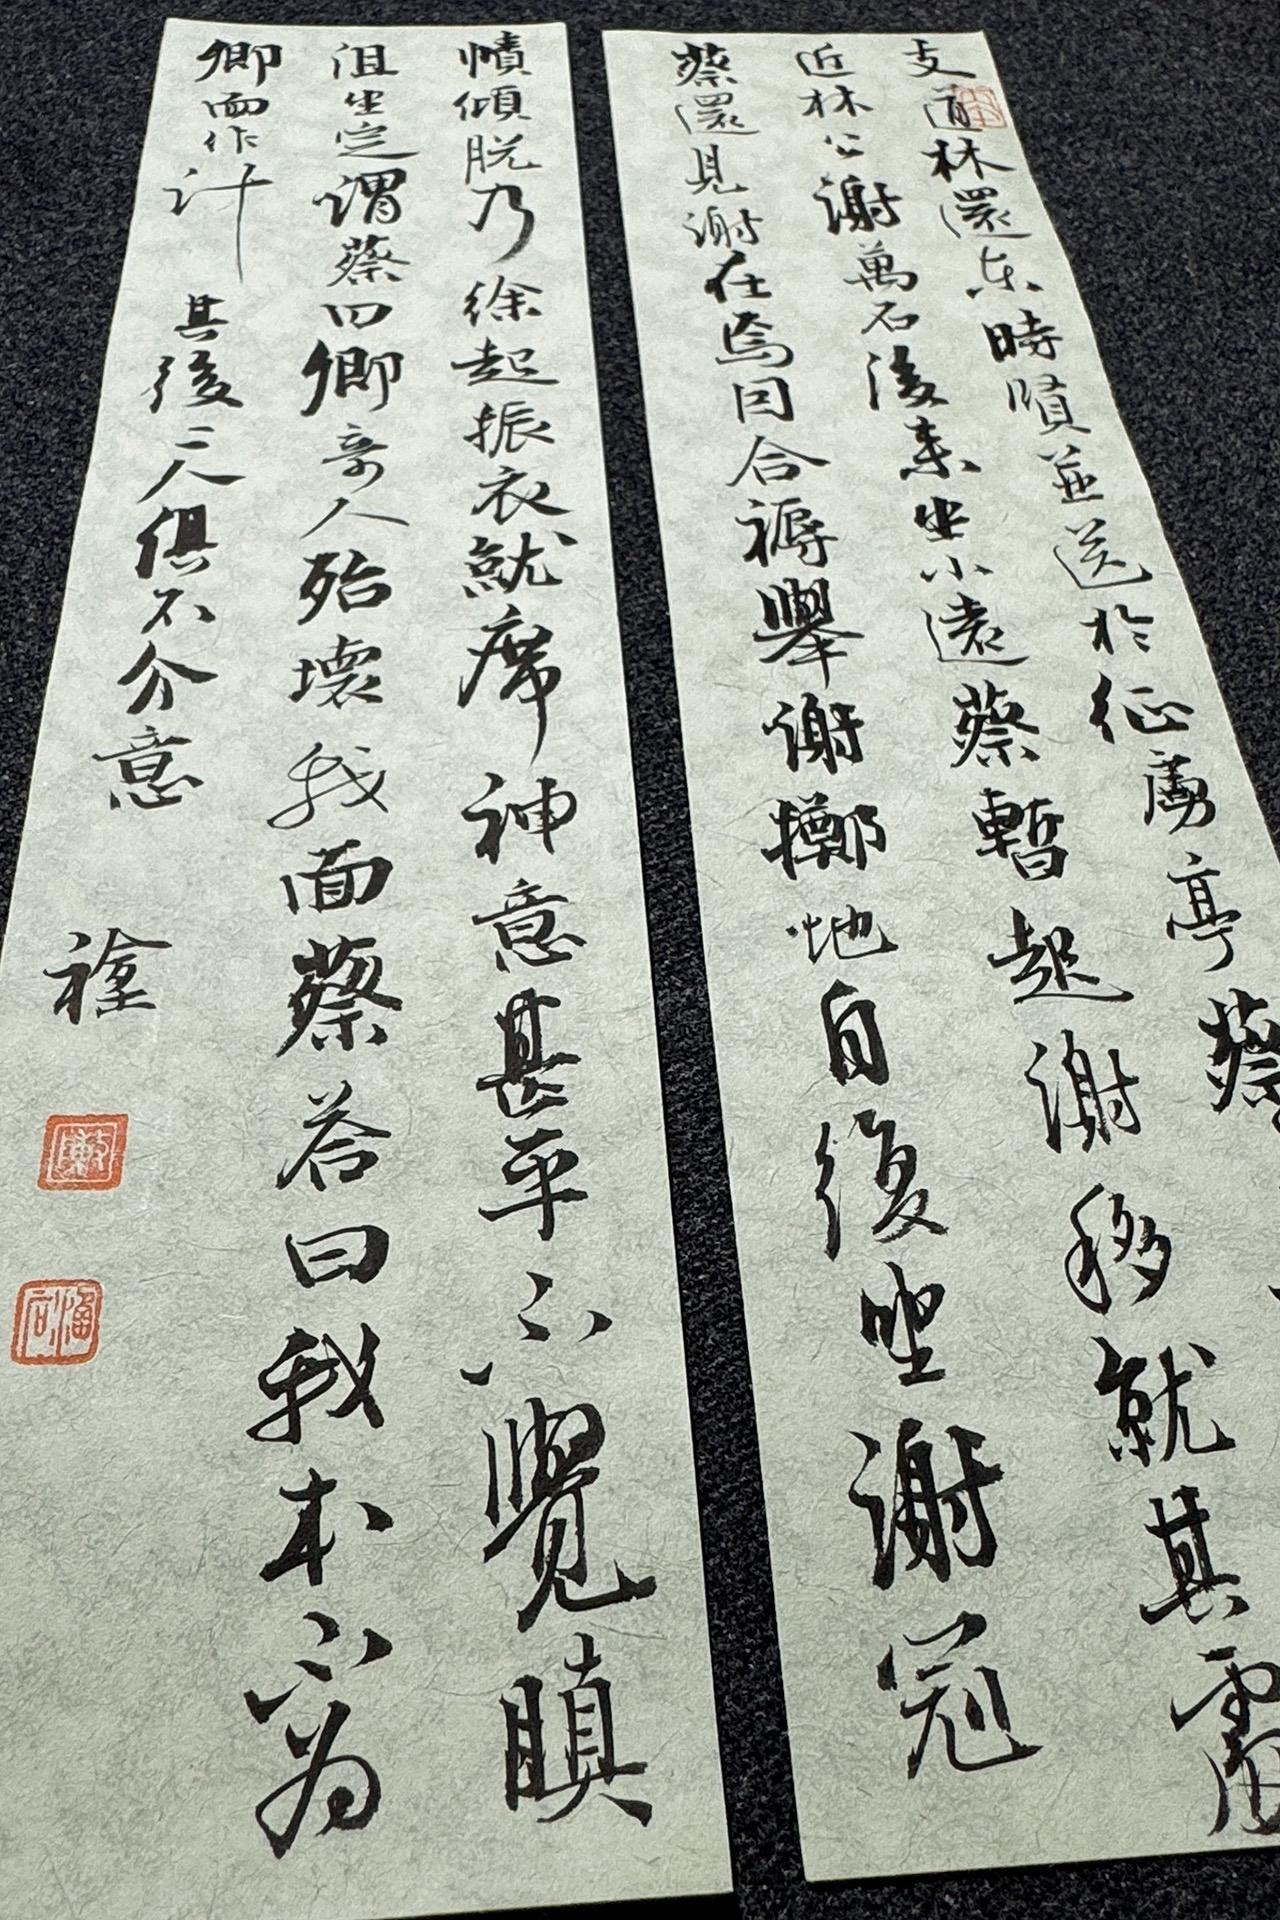 支道林還東時賢並送於征虜亭蔡
近林公謝萬石後來坐小遠蔡暫起謝移就其處
蔡還見謝在焉因合褥舉謝擲地自復坐謝冠
幘傾脫乃徐起振衣就席神意甚平不覺瞋
沮坐定謂蔡曰卿奇人殆壞我面蔡答曰我本不為
卿面作計其後二人俱不介意